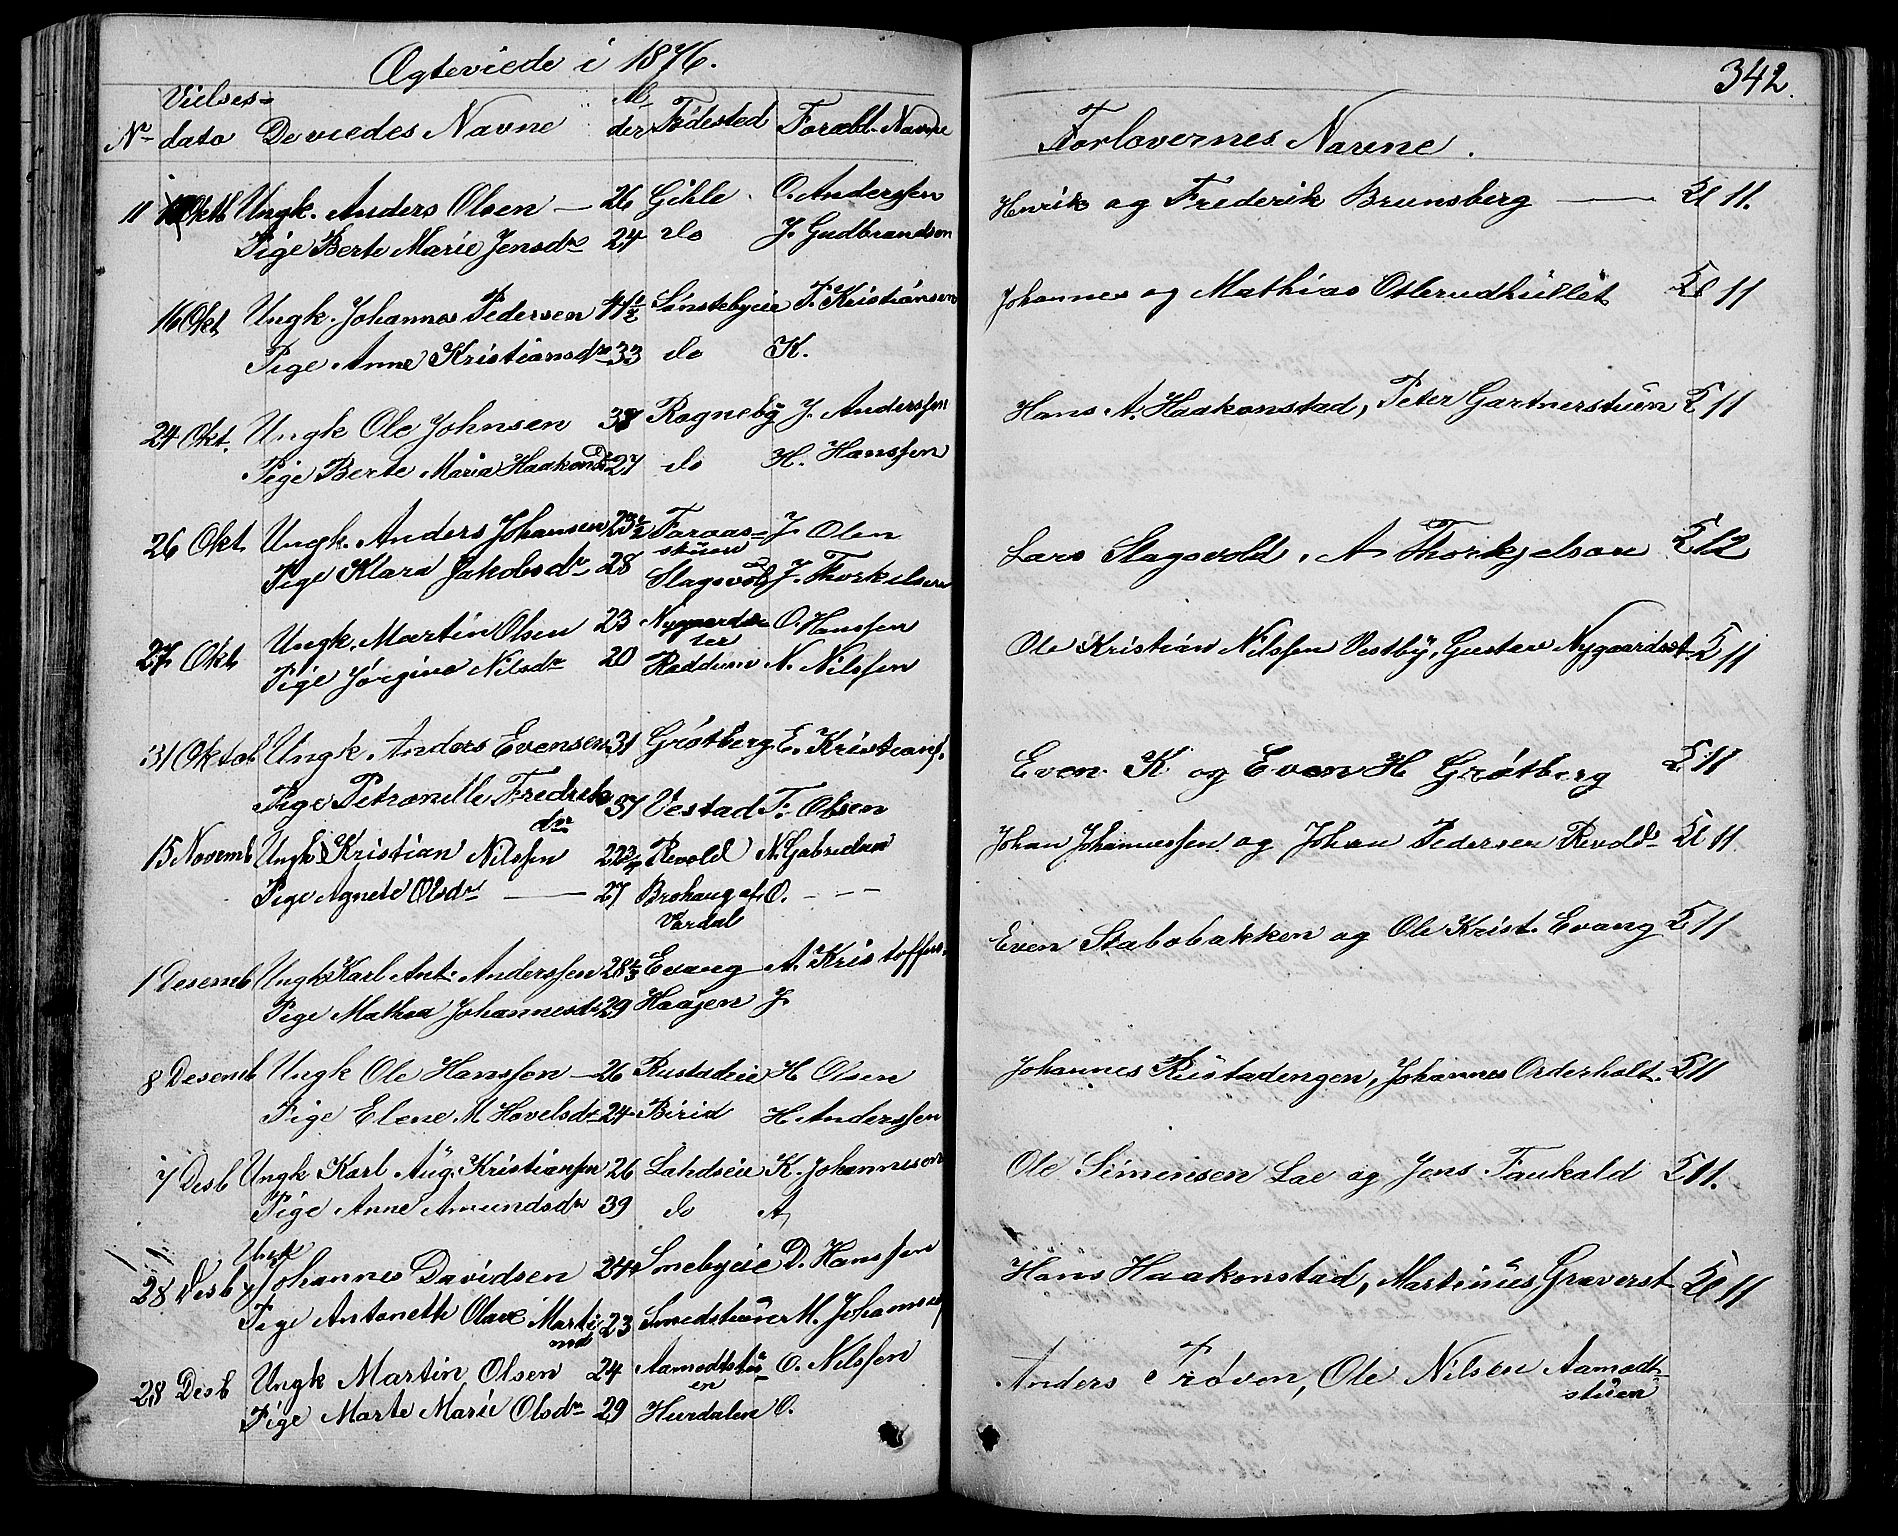 Ægteviede i 1876.
342.
Vielses=
Al
No dato De viedes Navne der Fødested Foræld. Navne Forlovernes Navne.
11 Oktb Ungk. Anders Olsen — 26 Gihle O. Anderssen Henrik og Frederik Brunsberg — Kl 11.
Pige Berte Marie Jensdr 24 do J. Gudbrandsen
16 Okt Ungk. Johannes Pedersen 41½ Sønstebyeie P. Kristiansen Johannes og Mathias Otlerudhullet Kl 11
Pige Anne Kristiansdr 33 do K.
24 Okt. Ungk Ole Johnsen 38 Rogneby J. Anderssen Hans A. Haakonstad, Peter Gartnerstuen K 11
Pige Berte Maria Haakonsd 27 do H. Hanssen
26 Okt Ungk. Anders Johansen 23½ Faraas= J. Olen Lars Slagsvold, A Thorkjelson K 12
stuen
Pige Klara Jakobsdr 28 Slagsvold J. Thorkelsen
27 Okt Ungk. Martin Olsen 23 Nygaardsæ O. Hanssen Ole Kristian Nilssen Vestby, Gustav Nygaardsæt K 11
ter
Pige Jørgine Nilsdr 20 Roddum N. Nilssen
31 Oktob Ungk. Anders Evensen 31 Grøtberg E. Kristians. Even K og Even H Grøtberg K 11
Pige Petronelle Fredrik 37 Vestad F. Olsen
dtr
15 Novemb Ungk Kristian Nilssen 22¾ Revold N. Gabrielsen Johan Johannessen og Johan Pedersen Revold Kl 11
Pige Agnete Olsdr — 27 Brohaug af O. - - -
Vardal
1 Desemb Ungk Karl Ant. Anderssen 28⅓ Evang A. Kristoffers. Even Stabobakken og Ole Krist. Evang K 11
Pige Mathea Johannesdr 29 Haajen J.
8 Desemb Ungk Ole Hanssen — 26 Rustadeie H Olsen Johannes Rustadengen, Johannes Orderholt. K 11
Pige Elene M Hovelsdr 24 Birid H Anderssen
7 Desb Ungk Karl Aug. Kristianssen 26 Lahdseie K. Johannesen Ole Simensen Lae og Jens Faukald K 11.
Pige Anne Amundsdr 39 do A
Ungk
28 Desb Johannes Davidsen 24 Smebyeie D. Hanssen Hans Haakonstad, Martinus Graverst Kl 11
Pige Antonette Olave Marti 23 Smedstuen M. Johannes
nsd
28 Desb Ungk Martin Olsen 24 Aamodtstu= O. Nilssen Anders Prøven, Ole Nilsen Aamodt=
en stuen
Pige Marte Marie Olsdr 29 Hurdalen O.